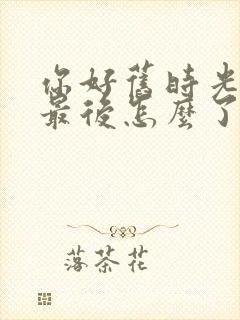 你好舊時光
最後怎麼了
落茶花